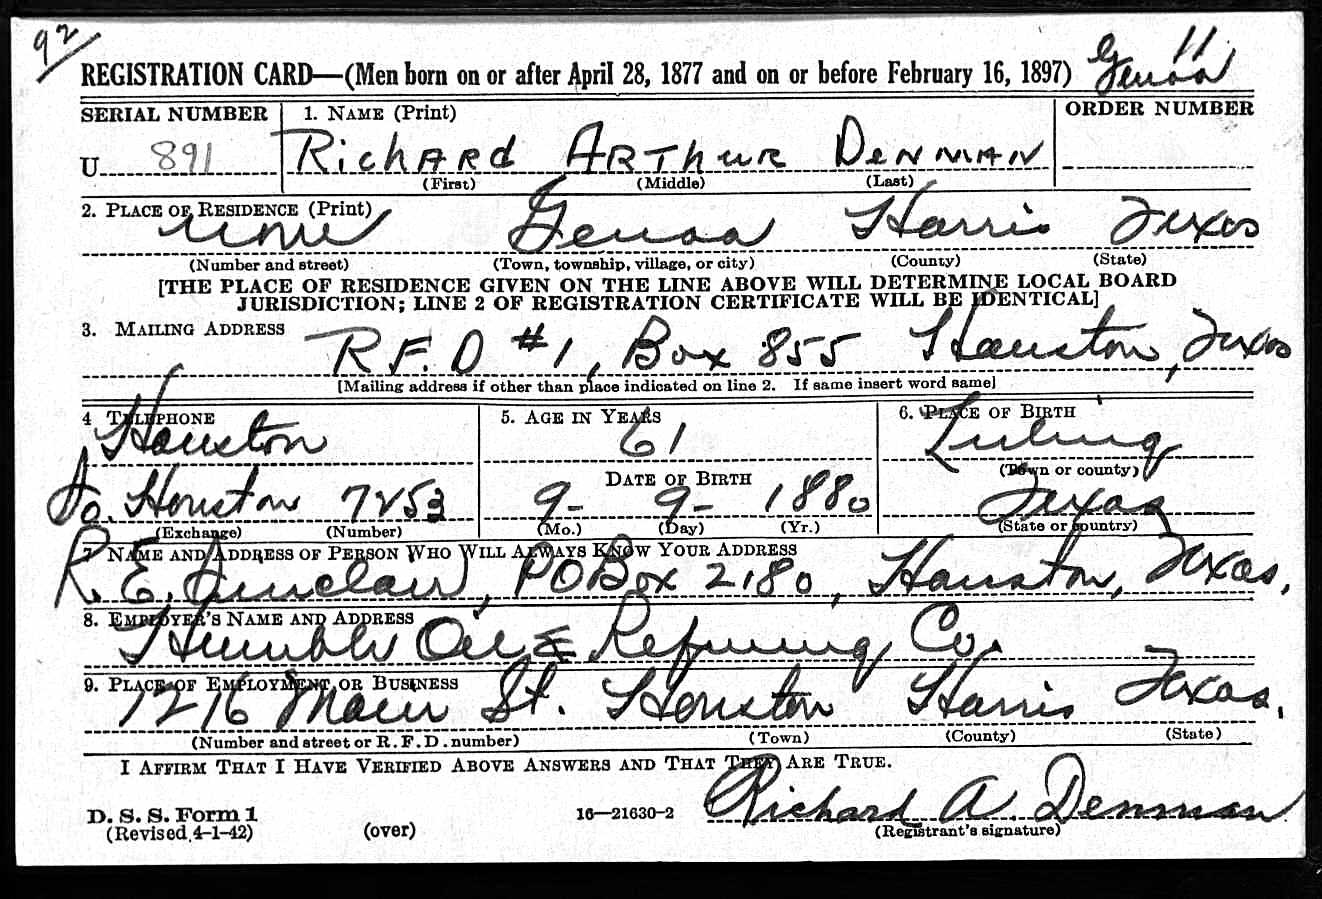 92
REGISTRATION CARD—(Men born on or after April 28, 1877 and on or before February 16, 1897) Genoa 11
SERIAL NUMBER 1. NAME (Print) ORDER NUMBER
U 891 RichARd ARThuR DeNMAN
(First) (Middle) (Last)
2. PLACE OF RESIDENCE (Print)
none Genoa Harris Texas
(Number and street) (Town, township, village, or city) (County) (State)
[THE PLACE OF RESIDENCE GIVEN ON THE LINE ABOVE WILL DETERMINE LOCAL BOARD
JURISDICTION; LINE 2 OF REGISTRATION CERTIFICATE WILL BE IDENTICAL]
3. MAILING ADDRESS
R.F.D #1, Box 855 Houston, Texas
[Mailing address if other than place indicated on line 2. If same insert word same]
4 TELEPHONE 5. AGE IN YEARS 6. PLACE OF BIRTH
Houston 61 Luling
DATE OF BIRTH (Town or county)
So. Houston 7253 9- 9- 1880 Texas
(Exchange) (Number) (Mo.) (Day) (Yr.) (State or country)
7. NAME AND ADDRESS OF PERSON WHO WILL ALWAYS KNOW YOUR ADDRESS
R. E. Sinclair, PO Box 2180, Houston, Texas.
8. EMPLOYER'S NAME AND ADDRESS
Humble Oil & Refining Co.
9. PLACE OF EMPLOYMENT OR BUSINESS
1216 Main St. Houston Harris Texas.
(Number and street or R.F.D. number) (Town) (County) (State)
I AFFIRM THAT I HAVE VERIFIED ABOVE ANSWERS AND THAT THEY ARE TRUE.
Richard A. Denman
D. S. S. Form 1 16—21630-2
(Revised 4-1-42) (over) (Registrant's signature)